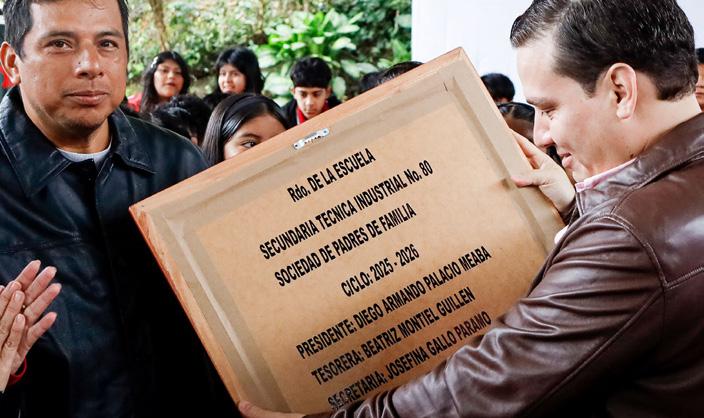 Rdo. DE LA ESCUELA
SECUNDARIA TECNICA INDUSTRIAL No. 80
SOCIEDAD DE PADRES DE FAMILIA
CICLO: 2025 - 2026
PRESIDENTE: DIEGO ARMANDO PALACIO MEABA
TESORERA: BEATRIZ MONTIEL GUILLEN
SECRETARIA: JOSEFINA GALLO PARAMO